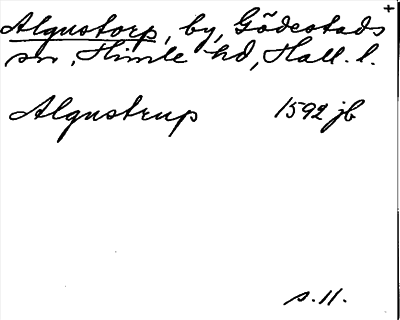 Algustorp, by, Gödestads +
sn, Himle hd, Hall. l.
Algustrup 1592 jb
s. 11.